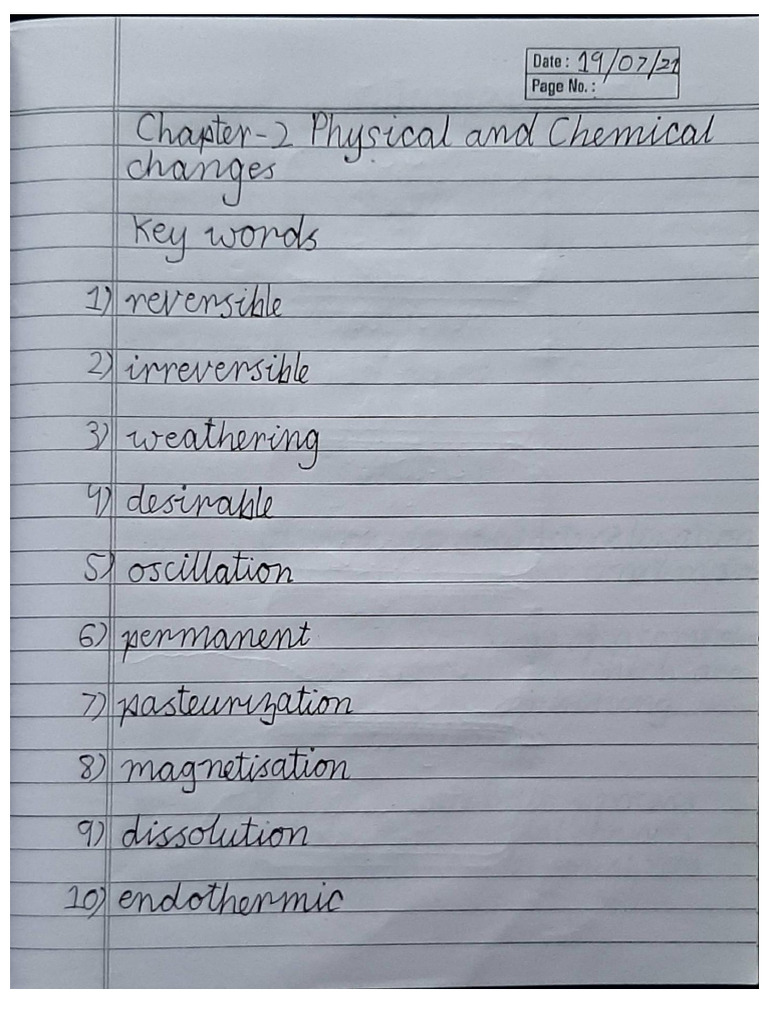 Date : 19/07/21
Page No. :
Chapter-2 Physical and Chemical
changes
Key words
1) reversible
2) irreversible
3) weathering
4) desirable
5) oscillation
6) permanent
7) pasteurization
8) magnetisation
9) dissolution
10) endothermic